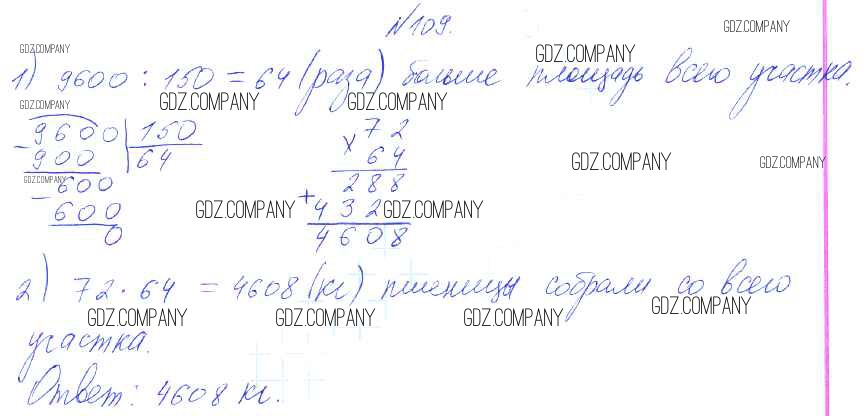 №109.
GDZ.COMPANY
GDZ.COMPANY GDZ.COMPANY
1) 9600 : 150 = 64 (раза) больше площадь всего участка.
GDZ.COMPANY GDZ.COMPANY
GDZ.COMPANY
- 9600 | 150
900 | 64
GDZ.COMPANY
- 600
600
0
× 72
64
288
+ 432
4608
GDZ.COMPANY GDZ.COMPANY
GDZ.COMPANY GDZ.COMPANY
2) 72 · 64 = 4608 (кг) пшеницы собрали со всего
GDZ.COMPANY GDZ.COMPANY GDZ.COMPANY GDZ.COMPANY
участка.
Ответ: 4608 кг.